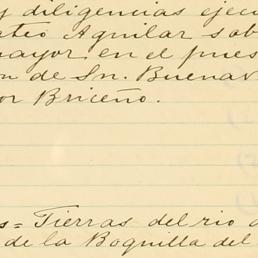 y diligencias ejec
ateo Aguilar sob
mayor en el pues
on de Sn. Buenav
or Briceño.
s = Tierras del rio d
de la Boquilla del